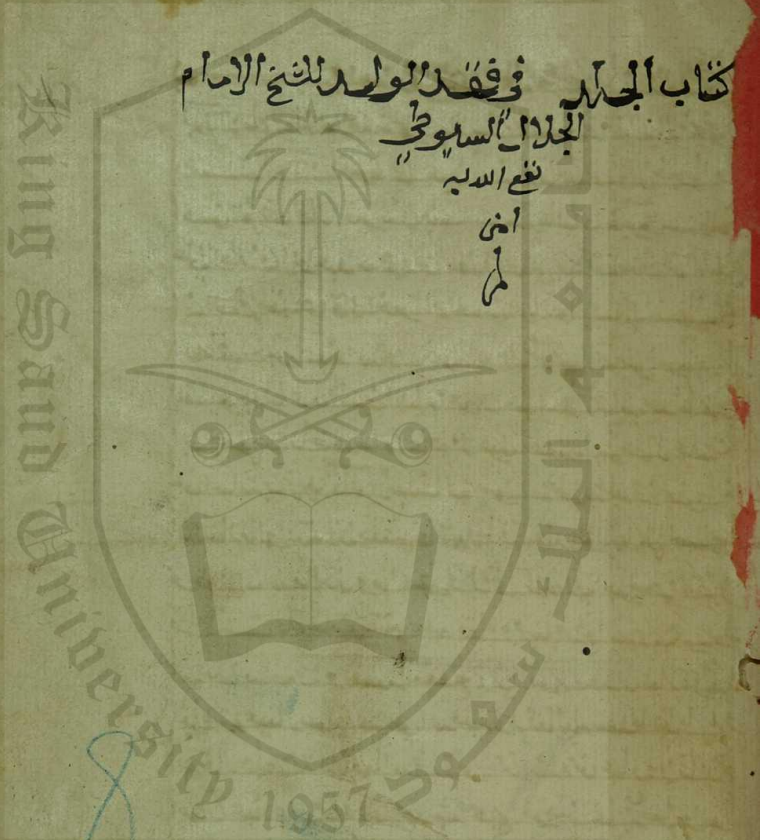 كتاب الجلد في فقد الولد للشيخ الامام
الجلال السيوطي
نفع الله به
امين
King Saud University 1957
جامعة الملك سعود